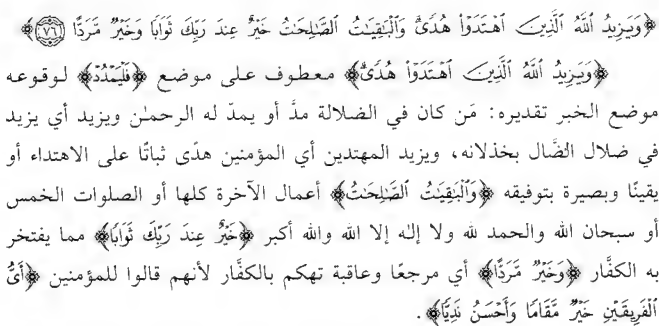 ﴿وَيَزِيدُ ٱللَّهُ ٱلَّذِينَ ٱهْتَدَوْا۟ هُدًىۗ وَٱلْبَٰقِيَٰتُ ٱلصَّٰلِحَٰتُ خَيْرٌ عِندَ رَبِّكَ ثَوَابًا وَخَيْرٌ مَّرَدًّا ﴿٧٦﴾﴾
﴿وَيَزِيدُ ٱللَّهُ ٱلَّذِينَ ٱهْتَدَوْا۟ هُدًىۗ﴾ معطوف على موضع ﴿فَلْيَمْدُدْ﴾ لوقوعه
موضع الخبر تقديره: مَن كان في الضلالة مدَّ أو يمدّ له الرحمٰن ويزيد أي يزيد
في ضلال الضَّال بخذلانه، ويزيد المهتدين أي المؤمنين هدًى ثباتًا على الاهتداء أو
يقينًا وبصيرة بتوفيقه ﴿وَٱلْبَٰقِيَٰتُ ٱلصَّٰلِحَٰتُ﴾ أعمال الآخرة كلها أو الصلوات الخمس
أو سبحان الله والحمد لله ولا إلٰه إلا الله والله أكبر ﴿خَيْرٌ عِندَ رَبِّكَ ثَوَابًا﴾ مما يفتخر
به الكفَّار ﴿وَخَيْرٌ مَّرَدًّا﴾ أي مرجعًا وعاقبة تهكم بالكفَّار لأنهم قالوا للمؤمنين ﴿أَىُّ
ٱلْفَرِيقَيْنِ خَيْرٌ مَّقَامًا وَأَحْسَنُ نَدِيًّا﴾.